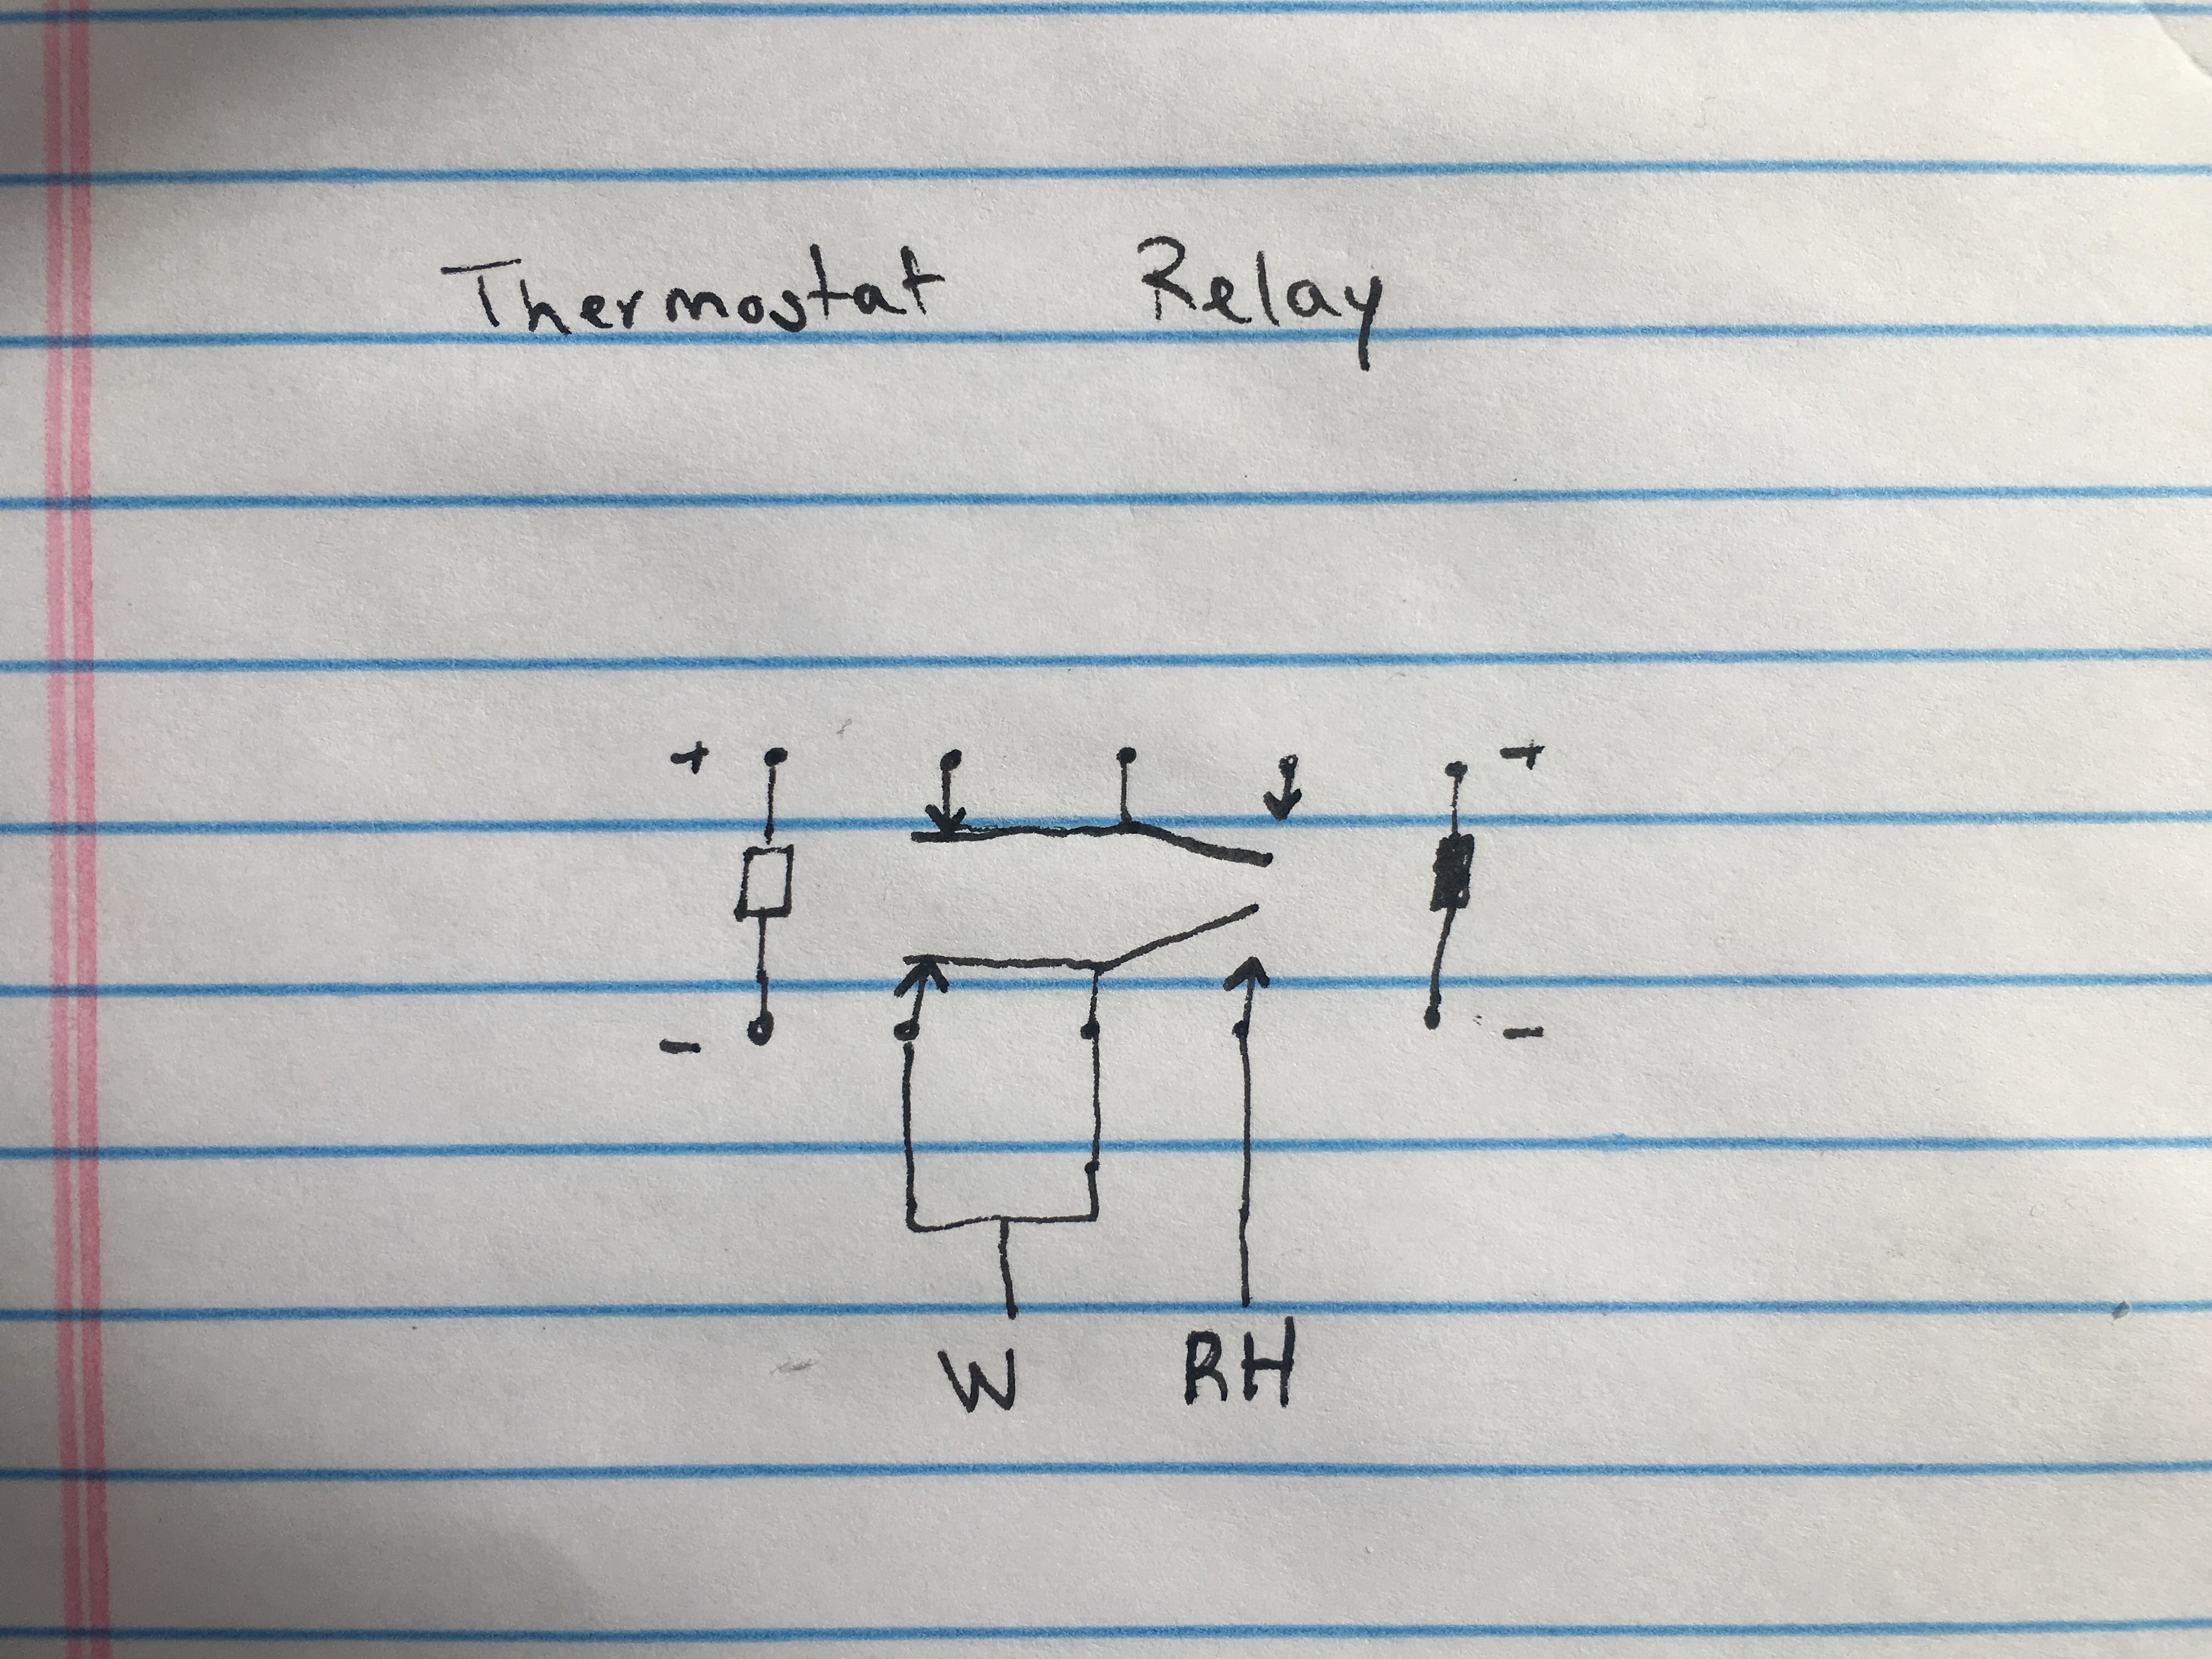 Thermostat Relay
+ +
- -
W RH